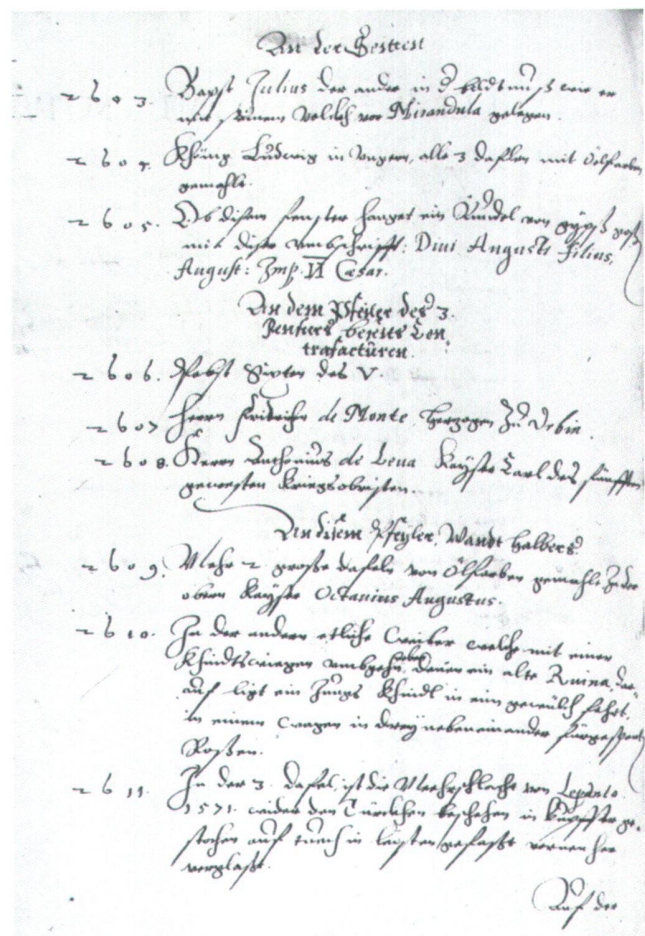 An der Seitten
2603. Bapst Julius der ander in d wie er
mit seinem Volckh vor Mirandula gelegen.
2604. Khünig Ludwig in Ungern, alle 3 daflen mit ölfarben
gemahlt.
2605. Ob disem fenster hanget ein Rundel von gypß goß
mit diser umbschrifft: Divi Augusti filius,
August: Imp. VI Cæsar.
An dem Pfeyler des 3.
fensters bereits Con,
trafacturen.
2606. Pabst Sixten des V.
2607 Herrn de Monte herzogen zu Urbin
2608. Herrn Anthonius de Leva Kayser Carl des fünfften
gewesten kriegsobristen.
An disem Pfeyler, Wandt halbers
2609. Mehr 2 große dafeln von Ölfarben gemahlt In der
obern Kayser Octavius Augustus.
2610. In der andern etliche weiber welche mit einer
Khindtswiegen umbgehn, neben denen ein alte Ruina, dar,
auf ligt ein Jungs Khindl in ein gewülch fehrt
in einem wagen in drey nebeneinander fürgespant
Roßen.
2611. In der 3. dafel, ist die Meehrschlacht von Lepanto
1571. wider den Türckhen beschehen in kupffer ge,
stochen auf tuech in leisten gefaßt vornen her
verglaßt.
Auf der